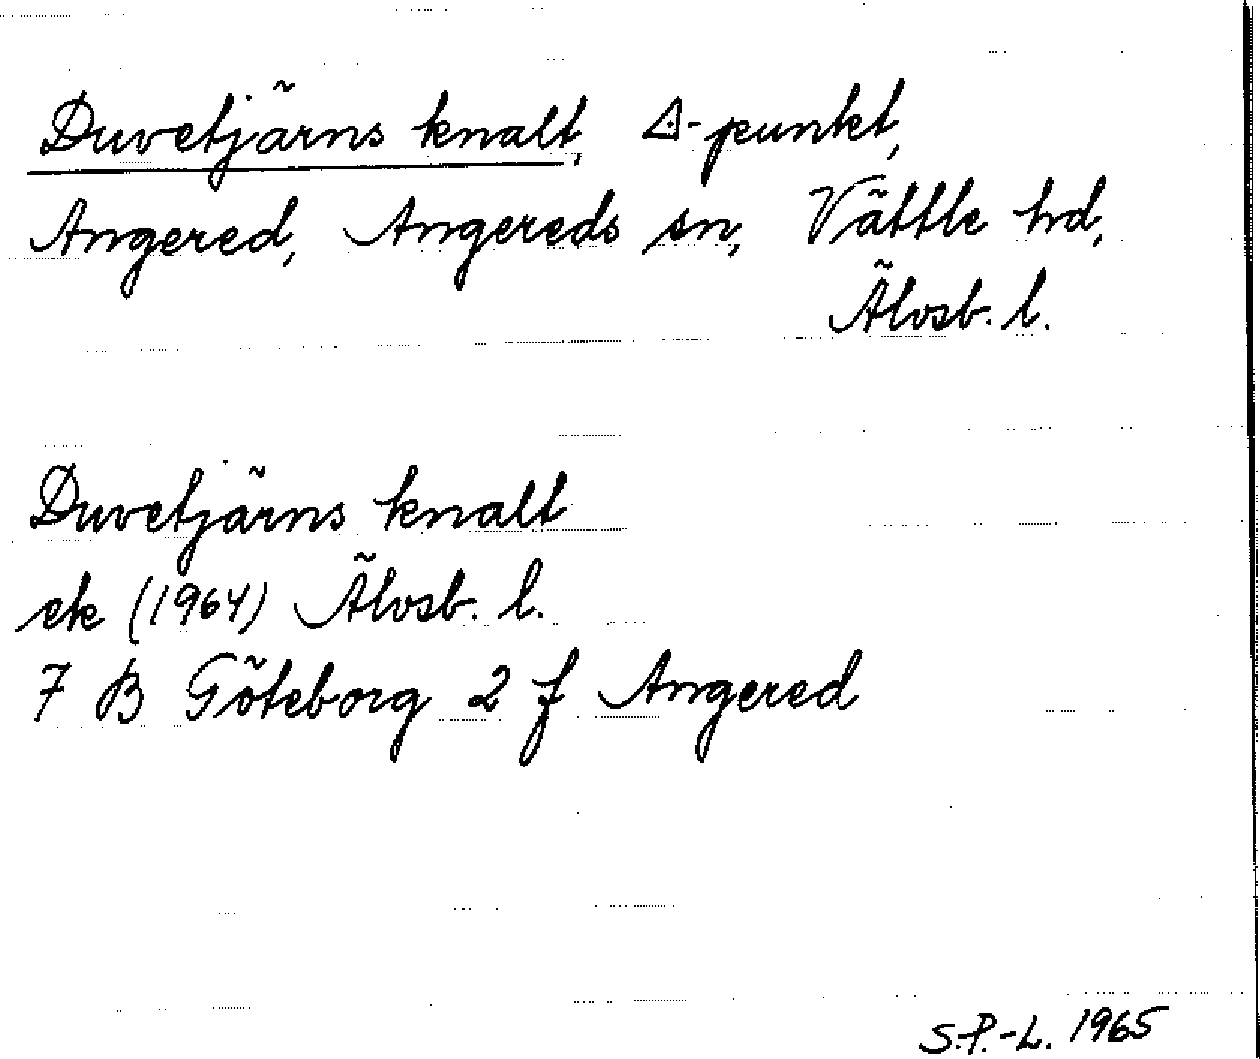 Duvetjärns knalt, △-punkt,
Angered, Angereds sn, Vättle hd,
Älvsb. l.
Duvetjärns knalt
ek (1964) Älvsb. l.
7 B Göteborg 2 f Angered
S.P.-L. 1965